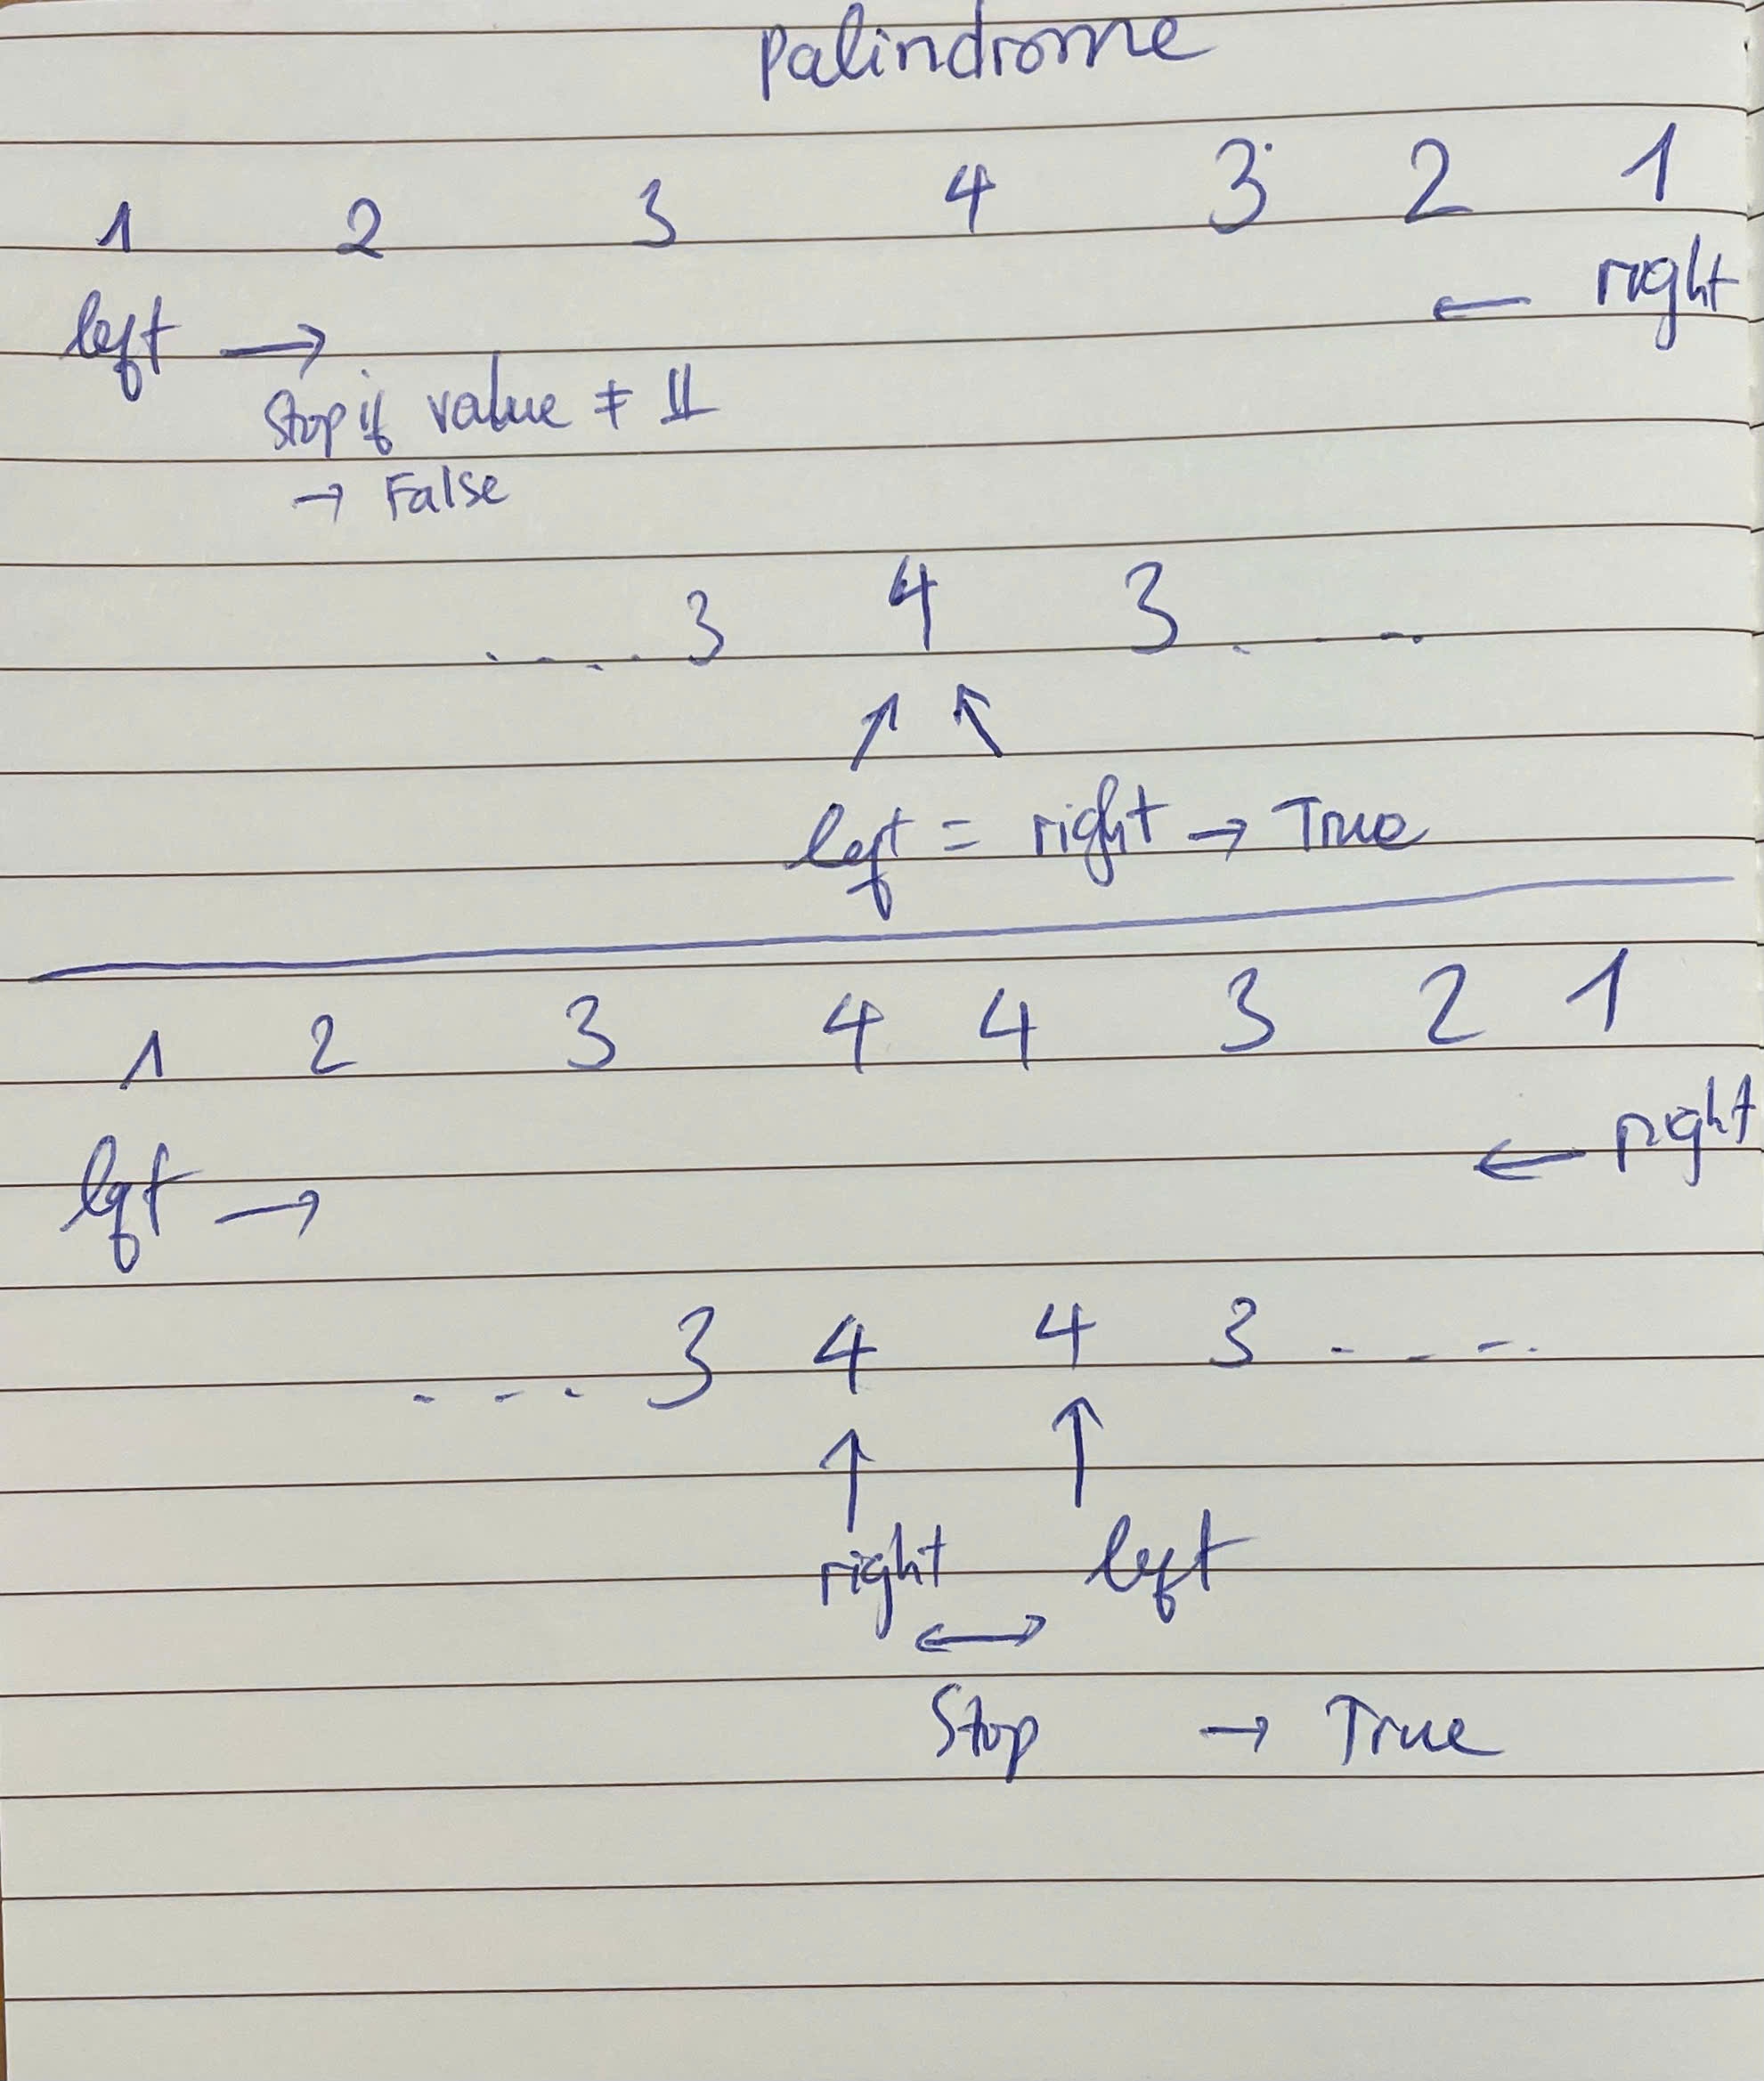 Palindrome
1 2 3 4 3 2 1
left → ← right
Stop if value ≠ !!
→ False
.... 3 4 3 . - - .
↑ ↑
left = right → True
1 2 3 4 4 3 2 1
left → ← right
- - - . 3 4 4 3 - - - .
↑ ↑
right left
↔
Stop → True